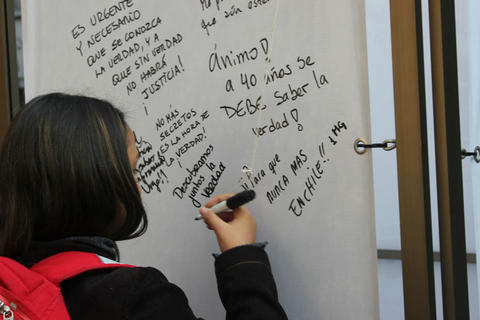 ES URGENTE
Y NECESARIO
QUE SE CONOZCA
LA VERDAD, Y A
QUE SIN VERDAD
NO HABRÁ
JUSTICIA!
que son
Ánimo!
A 40 años se
DEBE saber la
verdad!
¡NO MÁS
SECRETOS
ES LA HORA DE
LA VERDAD.!
Descubramos
juntos la
verdad
Para que
NUNCA MAS
EN CHILE!! 1 MG